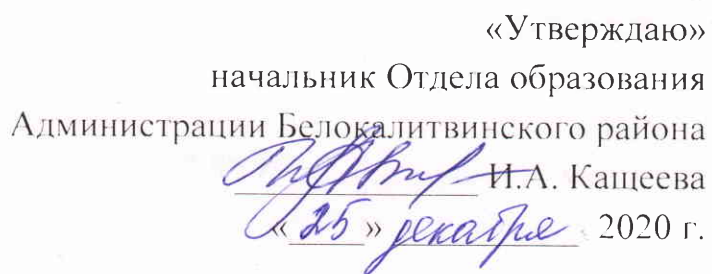 «Утверждаю»
начальник Отдела образования
Администрации Белокалитвинского района
И.А. Кащеева
«25» декабря 2020 г.